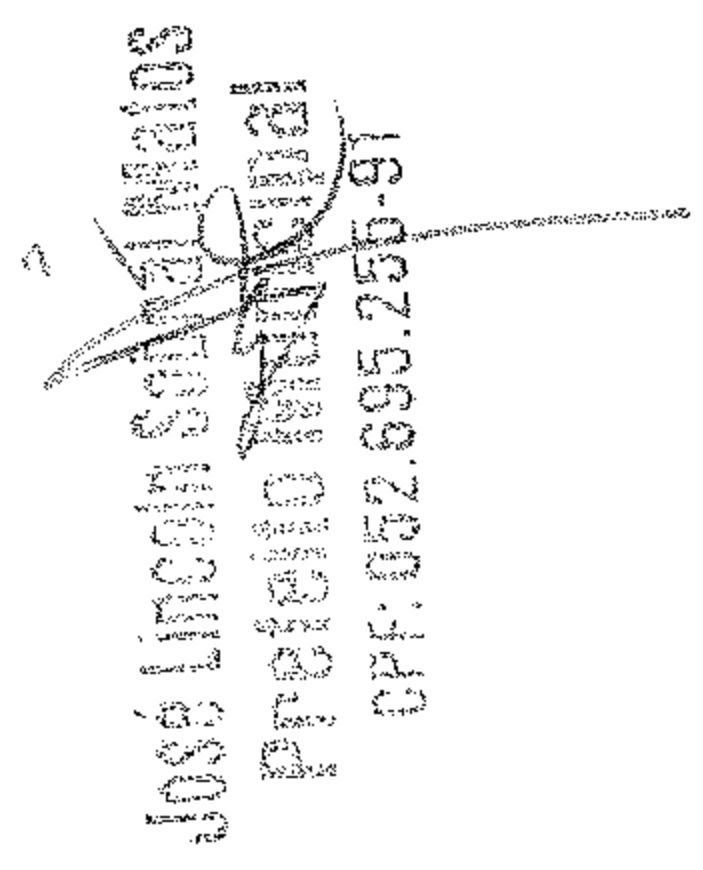 José Lincoln Sobral Matos
Prefeito Municipal
CPF: 052.695.255-91